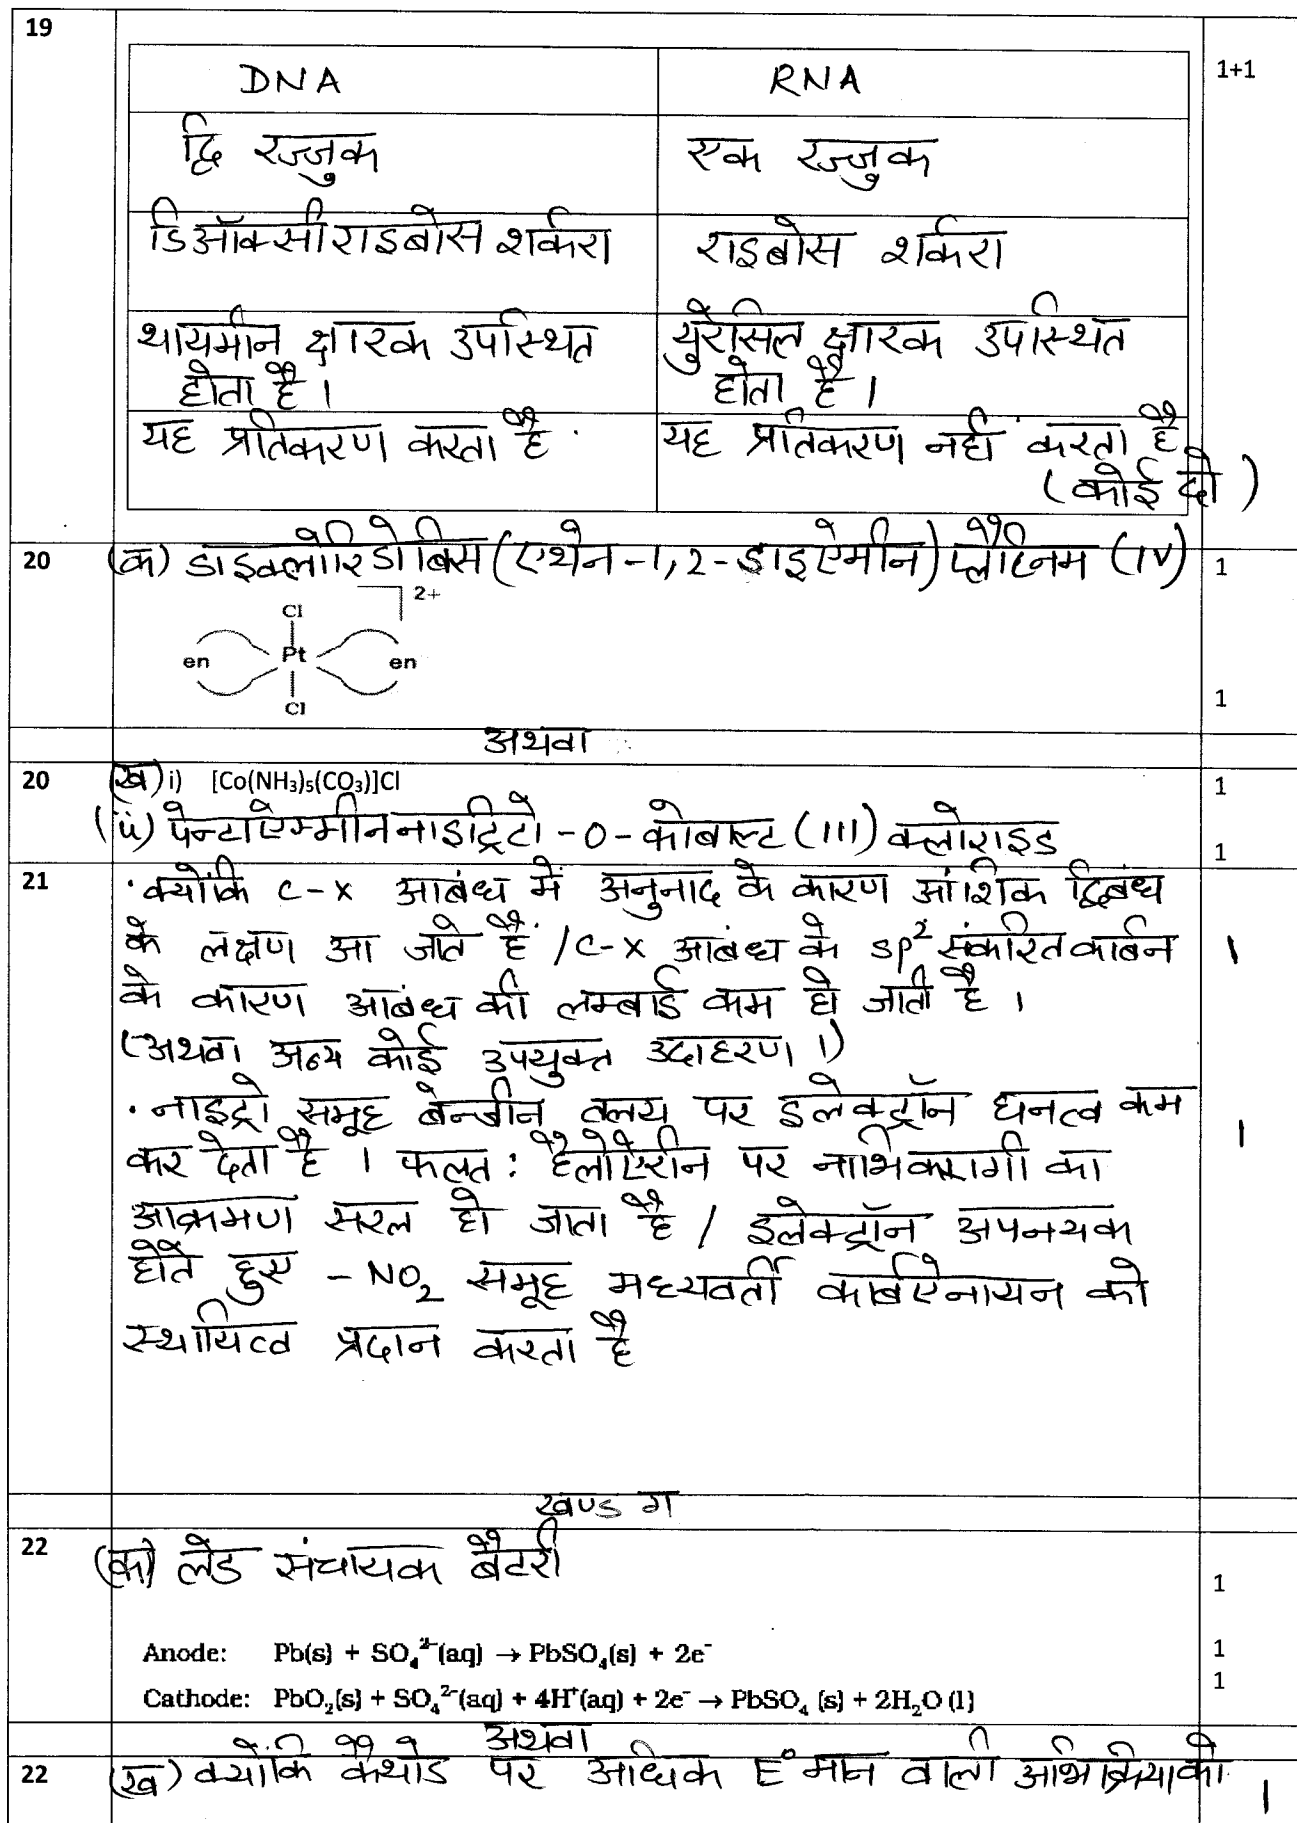 19
1+1
DNA RNA
द्वि रज्जुक एक रज्जुक
डिऑक्सीराइबोस शर्करा राइबोस शर्करा
थायमीन क्षारक उपस्थित युरेसिल क्षारक उपस्थित
होता है । होता है ।
यह प्रतिकरण करता है यह प्रतिकरण नहीं करता है
(कोई दो)
20 (क) डाइक्लोरिडोबिस(एथेन-1,2-डाइऐमीन)प्लैटिनम (IV) 1
2+
Cl
en Pt en
Cl
1
अथवा
20 (ख) i) [Co(NH₃)₅(CO₃)]Cl 1
(ii) पेन्टाऐम्मीननाइट्रिटो-O-कोबाल्ट (III) क्लोराइड 1
21 · क्योंकि C-X आबंध में अनुनाद के कारण आंशिक द्विबंध
के लक्षण आ जाते हैं /C-X आबंध के sp² संकरित कार्बन 1
के कारण आबंध की लम्बाई कम हो जाती है ।
(अथवा अन्य कोई उपयुक्त उदाहरण ।)
· नाइट्रो समूह बेन्जीन वलय पर इलेक्ट्रॉन घनत्व कम 1
कर देता है । फलत: हैलोऐरीन पर नाभिकरागी का
आक्रमण सरल हो जाता है / इलेक्ट्रॉन अपनयक
होते हुए -NO₂ समूह मध्यवर्ती कार्बऐनायन को
स्थायित्व प्रदान करता है
खण्ड ग
22 (क) लेड संचायक बैटरी
1
Anode: Pb(s) + SO₄²⁻(aq) → PbSO₄(s) + 2e⁻ 1
Cathode: PbO₂(s) + SO₄²⁻(aq) + 4H⁺(aq) + 2e⁻ → PbSO₄ (s) + 2H₂O (l) 1
अथवा
22 (ख) क्योंकि कैथोड पर अधिक E° मान वाली अभिक्रिया को 1